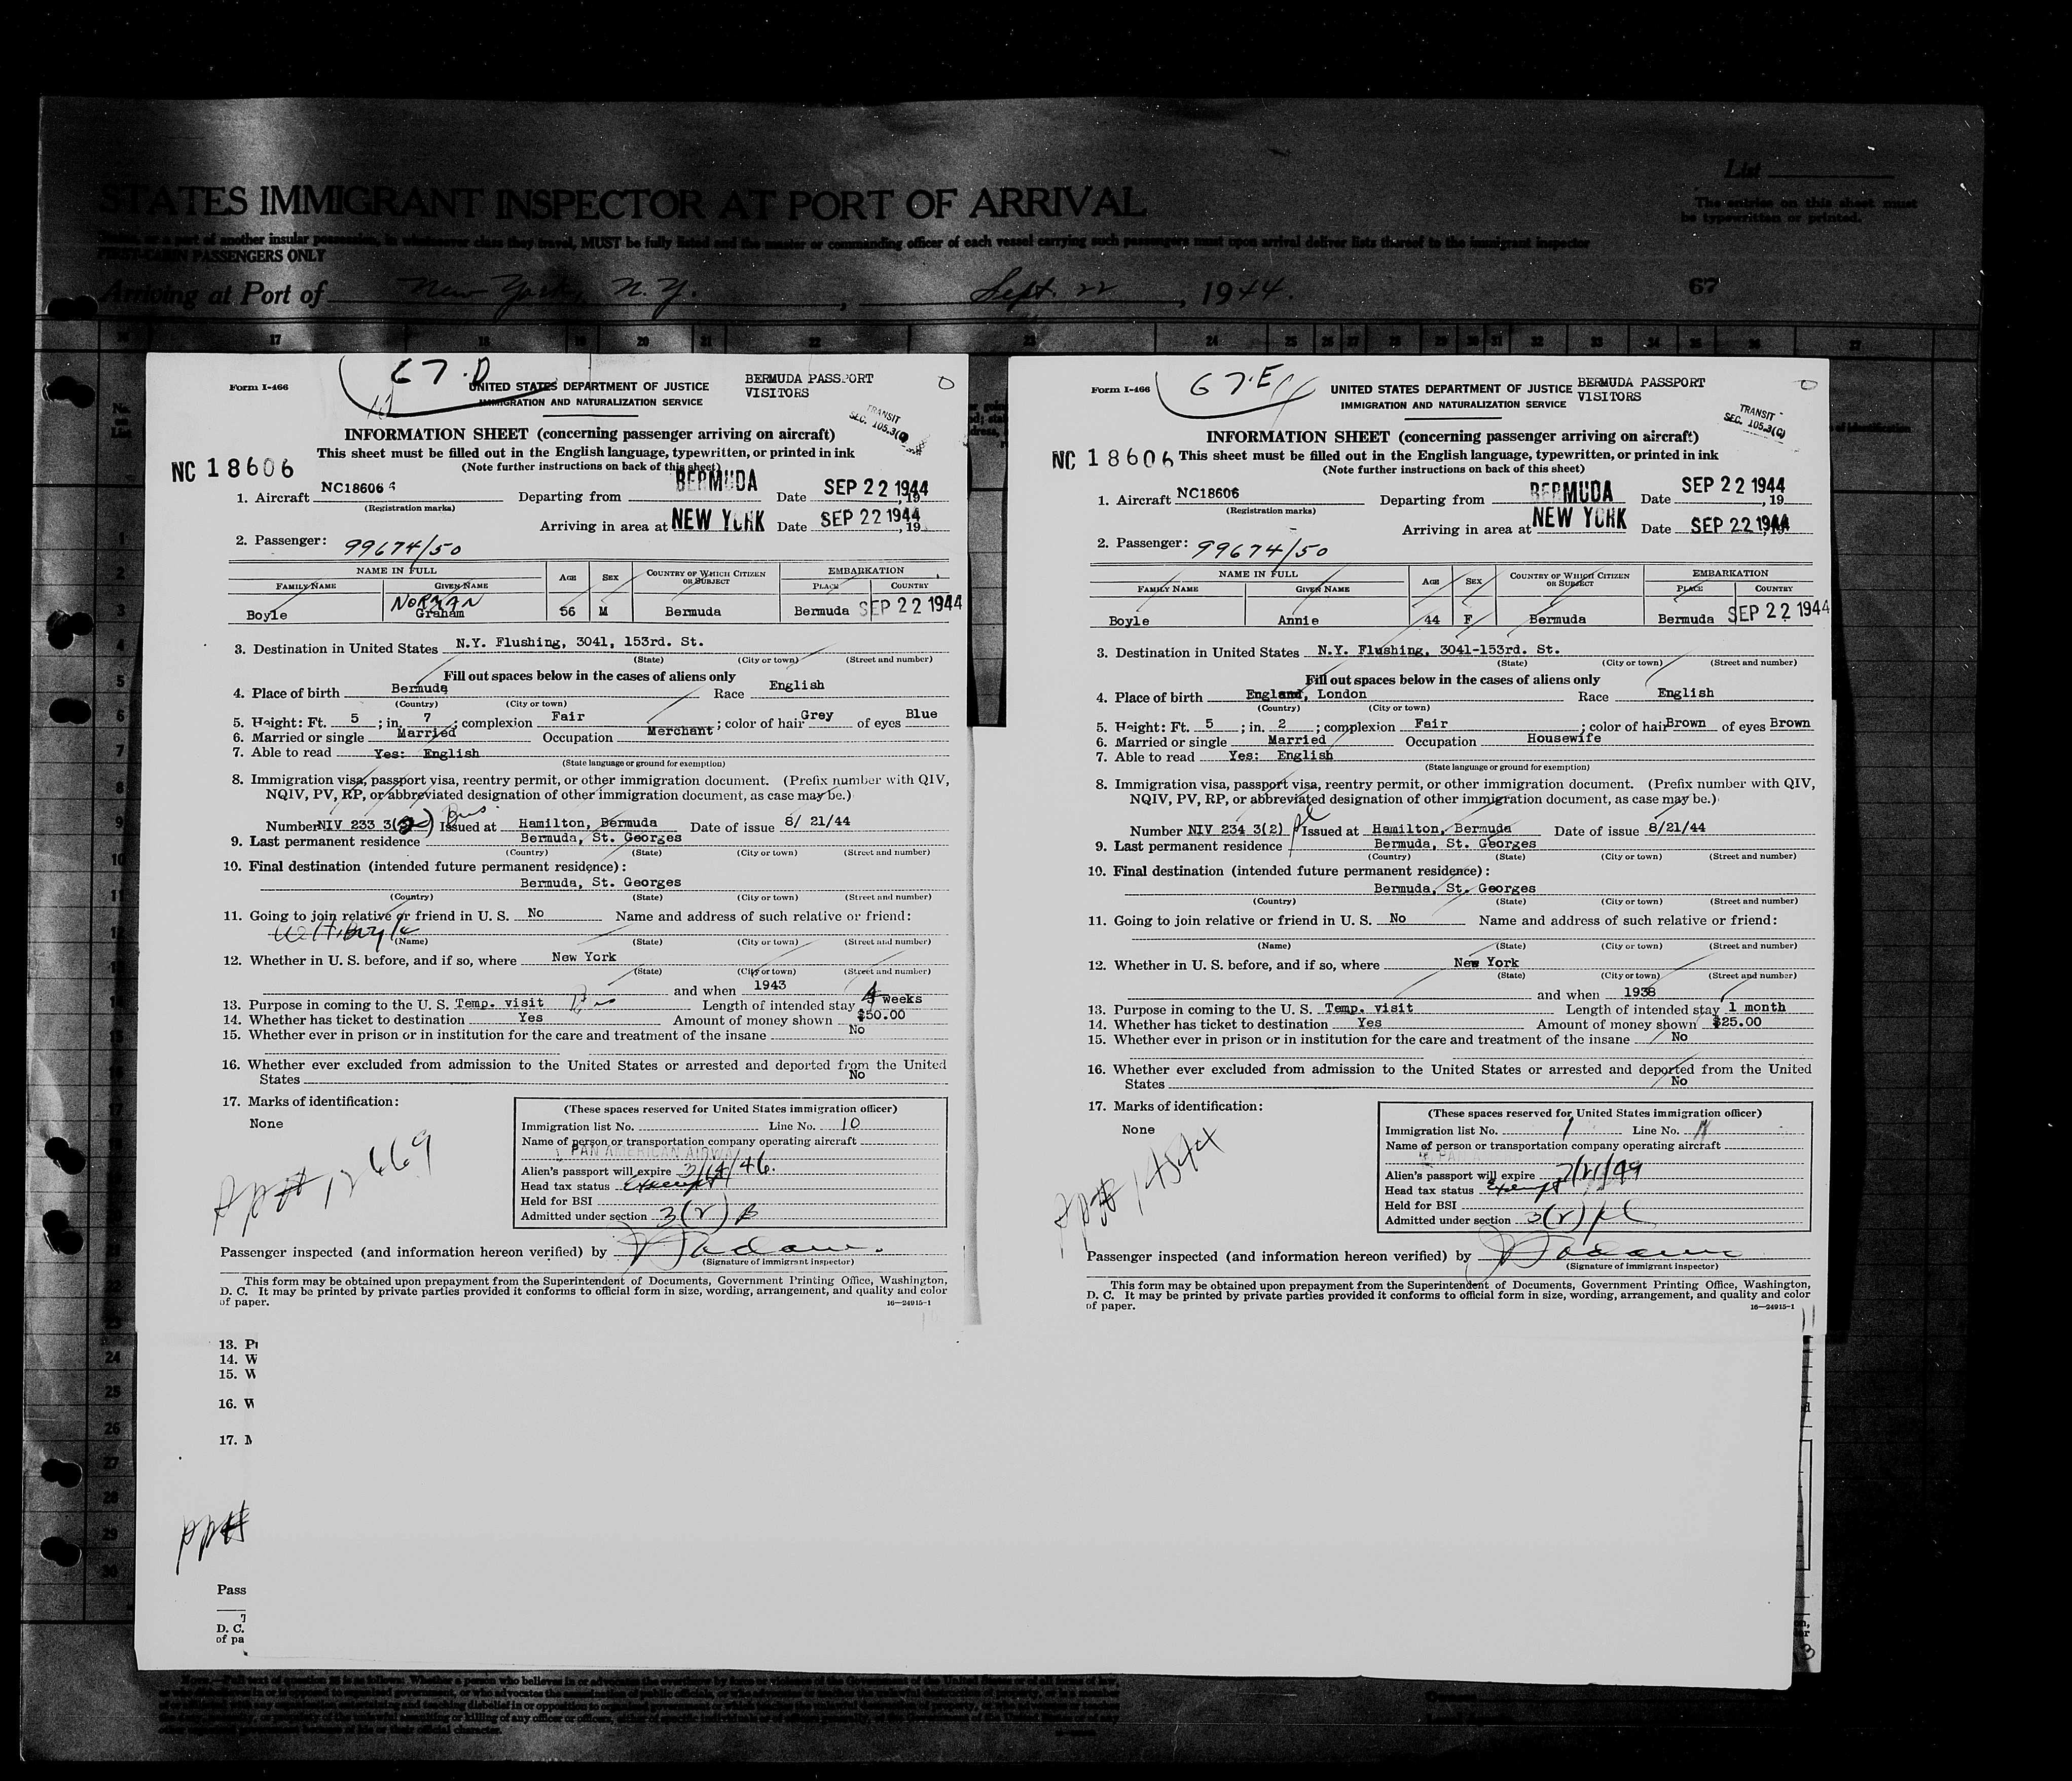 List
STATES IMMIGRANT INSPECTOR AT PORT OF ARRIVAL
The entries on this sheet must
be typewritten or printed.
or a part of another insular possession, in whatsoever class they travel, MUST be fully listed and the master or commanding officer of each vessel carrying such passengers must upon arrival deliver lists thereof to the immigrant inspector
FIRST-CABIN PASSENGERS ONLY
Arriving at Port of New York, N.Y., Sept. 22, 1944.
67
17 18 19 20 21 22 23 24 25 26 27 28 29 30 31 32 33 34 35 36 37
67.D
Form I-466
UNITED STATES DEPARTMENT OF JUSTICE
IMMIGRATION AND NATURALIZATION SERVICE
BERMUDA PASSPORT
VISITORS
TRANSIT
SEC. 105.3(
INFORMATION SHEET (concerning passenger arriving on aircraft)
This sheet must be filled out in the English language, typewritten, or printed in ink
(Note further instructions on back of this sheet)
NC 18606
1. Aircraft NC18606 Departing from BERMUDA Date SEP 22 1944, 19
(Registration marks)
Arriving in area at NEW YORK Date SEP 22 1944, 19
2. Passenger: 99674/50
NAME IN FULL AGE SEX COUNTRY OF WHICH CITIZEN OR SUBJECT EMBARKATION
FAMILY NAME GIVEN NAME PLACE COUNTRY
NORMAN
Boyle Graham 56 M Bermuda Bermuda SEP 22 1944
3. Destination in United States N.Y. Flushing, 3041, 153rd. St.
(State) (City or town) (Street and number)
Fill out spaces below in the cases of aliens only
4. Place of birth Bermuda Race English
(Country) (City or town)
5. Height: Ft. 5; in. 7; complexion Fair; color of hair Grey of eyes Blue
6. Married or single Married Occupation Merchant
7. Able to read Yes: English
(State language or ground for exemption)
8. Immigration visa, passport visa, reentry permit, or other immigration document. (Prefix number with QIV,
NQIV, PV, RP, or abbreviated designation of other immigration document, as case may be.)
Number NIV 233 3(2) Issued at Hamilton, Bermuda Date of issue 8/ 21/44
9. Last permanent residence Bermuda, St. Georges
(Country) (State) (City or town) (Street and number)
10. Final destination (intended future permanent residence):
Bermuda, St. Georges
(Country) (State) (City or town) (Street and number)
11. Going to join relative or friend in U. S. No Name and address of such relative or friend:
W H Boyle
(Name) (State) (City or town) (Street and number)
12. Whether in U. S. before, and if so, where New York
(State) (City or town) (Street and number)
and when 1943
13. Purpose in coming to the U. S. Temp. visit Length of intended stay 4 weeks
14. Whether has ticket to destination Yes Amount of money shown $50.00
15. Whether ever in prison or in institution for the care and treatment of the insane No
16. Whether ever excluded from admission to the United States or arrested and deported from the United
States No
17. Marks of identification:
None
PP# 12669
(These spaces reserved for United States immigration officer)
Immigration list No. Line No. 10
Name of person or transportation company operating aircraft
PAN AMERICAN AIRWAYS
Alien's passport will expire 3/14/46.
Head tax status Exempt
Held for BSI
Admitted under section 3(2)
Passenger inspected (and information hereon verified) by
(Signature of immigrant inspector)
This form may be obtained upon prepayment from the Superintendent of Documents, Government Printing Office, Washington,
D. C. It may be printed by private parties provided it conforms to official form in size, wording, arrangement, and quality and color
of paper. 16—24915-1
67.E
Form I-466
UNITED STATES DEPARTMENT OF JUSTICE
IMMIGRATION AND NATURALIZATION SERVICE
BERMUDA PASSPORT
VISITORS
TRANSIT
SEC. 105.3(C)
INFORMATION SHEET (concerning passenger arriving on aircraft)
This sheet must be filled out in the English language, typewritten, or printed in ink
(Note further instructions on back of this sheet)
NC 18606
1. Aircraft NC18606 Departing from BERMUDA Date SEP 22 1944, 19
(Registration marks)
Arriving in area at NEW YORK Date SEP 22 1944, 19
2. Passenger: 99674/50
NAME IN FULL AGE SEX COUNTRY OF WHICH CITIZEN OR SUBJECT EMBARKATION
FAMILY NAME GIVEN NAME PLACE COUNTRY
Boyle Annie 44 F Bermuda Bermuda SEP 22 1944
3. Destination in United States N.Y. Flushing, 3041-153rd. St.
(State) (City or town) (Street and number)
Fill out spaces below in the cases of aliens only
4. Place of birth England, London Race English
(Country) (City or town)
5. Height: Ft. 5; in. 2; complexion Fair; color of hair Brown of eyes Brown
6. Married or single Married Occupation Housewife
7. Able to read Yes: English
(State language or ground for exemption)
8. Immigration visa, passport visa, reentry permit, or other immigration document. (Prefix number with QIV,
NQIV, PV, RP, or abbreviated designation of other immigration document, as case may be.)
Number NIV 234 3(2) Issued at Hamilton, Bermuda Date of issue 8/21/44
9. Last permanent residence Bermuda, St. Georges
(Country) (State) (City or town) (Street and number)
10. Final destination (intended future permanent residence):
Bermuda, St. Georges
(Country) (State) (City or town) (Street and number)
11. Going to join relative or friend in U. S. No Name and address of such relative or friend:
(Name) (State) (City or town) (Street and number)
12. Whether in U. S. before, and if so, where New York
(State) (City or town) (Street and number)
and when 1938
13. Purpose in coming to the U. S. Temp. visit Length of intended stay 1 month
14. Whether has ticket to destination Yes Amount of money shown $25.00
15. Whether ever in prison or in institution for the care and treatment of the insane No
16. Whether ever excluded from admission to the United States or arrested and deported from the United
States No
17. Marks of identification:
None
(These spaces reserved for United States immigration officer)
Immigration list No. 1 Line No. 11
Name of person or transportation company operating aircraft
Alien's passport will expire
Head tax status Exempt
Held for BSI
Admitted under section 3(2)
Passenger inspected (and information hereon verified) by
(Signature of immigrant inspector)
This form may be obtained upon prepayment from the Superintendent of Documents, Government Printing Office, Washington,
D. C. It may be printed by private parties provided it conforms to official form in size, wording, arrangement, and quality and color
of paper. 16—24915-1
13. P
14. W
15. W
16. W
17. M
PP#
Pass
D. C.
of pa